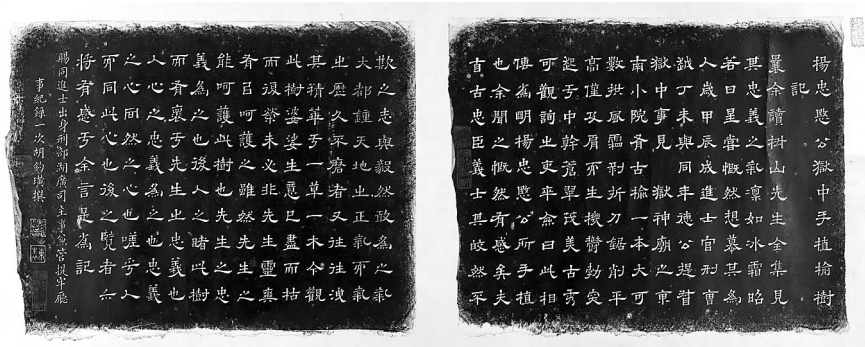 楊忠愍公獄中手植榆樹
記
曩余讀椒山先生全集見
其忠義之氣凛如冰霜昭
若日星嘗慨然想慕其為
人歲甲辰成進士官刑曹
越丁未與同年德公提督
獄中事見 獄神廟之東
南小院有古榆一本大可
數拱風霜剥折刀鋸削平
高僅及肩而生機鬱勃突
起于中幹蒼翠茂美古秀
可觀詢之吏卒僉曰此相
傳為明楊忠愍公所手植
也余聞之慨然有感矣夫
自古忠臣義士其皎然不
欺之志與毅然敢為之氣
大都鍾天地之正氣而氣
之歷久不磨者又往往洩
其精華于一草一木今觀
此樹婆娑生意已盡而枯
而復榮未必非先生靈爽
有呵護之雖然先生之
能呵護此樹也先生之忠
義為之也後人之睹此樹
而有褱于先生之忠義也
人心之忠義為之也忠義
之心同然之心也嗟乎人
不同此心也後之覽者亦
將有感于余言是為記
賜同進士出身刑部湖廣司主事兼管提牢廳
事紀錄一次胡鈞璜撰